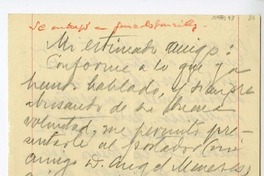 Se entregó a
Mi estimado amigo:
Conforme a lo que ya
hemos hablado, y siempre
abusando de su buena
voluntad, me permito pre-
sentarle al portador (mi
amigo D. Angel